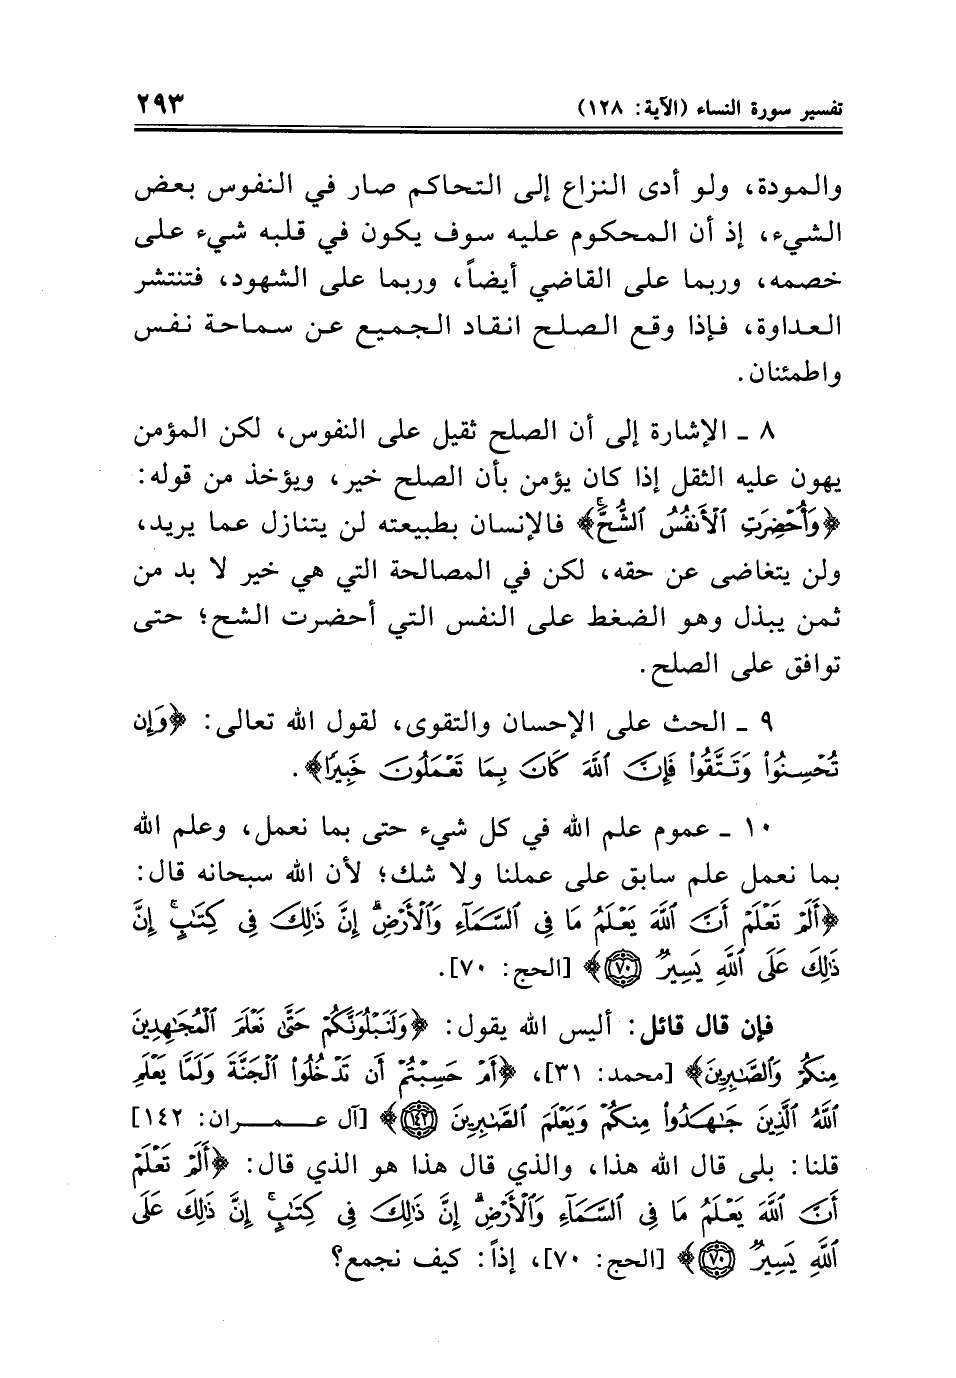 تفسير سورة النساء (الآية: ١٢٨) ٢٩٣
والمودة، ولو أدى النزاع إلى التحاكم صار في النفوس بعض
الشيء، إذ أن المحكوم عليه سوف يكون في قلبه شيء على
خصمه، وربما على القاضي أيضاً، وربما على الشهود، فتنتشر
العداوة، فإذا وقع الصلح انقاد الجميع عن سماحة نفس
واطمئنان.
٨ ـ الإشارة إلى أن الصلح ثقيل على النفوس، لكن المؤمن
يهون عليه الثقل إذا كان يؤمن بأن الصلح خير، ويؤخذ من قوله:
﴿وَأُحْضِرَتِ ٱلْأَنفُسُ ٱلشُّحَّۚ﴾ فالإنسان بطبيعته لن يتنازل عما يريد،
ولن يتغاضى عن حقه، لكن في المصالحة التي هي خير لا بد من
ثمن يبذل وهو الضغط على النفس التي أحضرت الشح؛ حتى
توافق على الصلح.
٩ ـ الحث على الإحسان والتقوى، لقول الله تعالى: ﴿وَإِن
تُحْسِنُوا۟ وَتَتَّقُوا۟ فَإِنَّ ٱللَّهَ كَانَ بِمَا تَعْمَلُونَ خَبِيرًا﴾.
١٠ ـ عموم علم الله في كل شيء حتى بما نعمل، وعلم الله
بما نعمل علم سابق على عملنا ولا شك؛ لأن الله سبحانه قال:
﴿أَلَمْ تَعْلَمْ أَنَّ ٱللَّهَ يَعْلَمُ مَا فِى ٱلسَّمَآءِ وَٱلْأَرْضِۗ إِنَّ ذَٰلِكَ فِى كِتَٰبٍۚ إِنَّ
ذَٰلِكَ عَلَى ٱللَّهِ يَسِيرٌ ٧٠﴾ [الحج: ٧٠].
فإن قال قائل: أليس الله يقول: ﴿وَلَنَبْلُوَنَّكُمْ حَتَّىٰ نَعْلَمَ ٱلْمُجَٰهِدِينَ
مِنكُمْ وَٱلصَّٰبِرِينَ﴾ [محمد: ٣١]، ﴿أَمْ حَسِبْتُمْ أَن تَدْخُلُوا۟ ٱلْجَنَّةَ وَلَمَّا يَعْلَمِ
ٱللَّهُ ٱلَّذِينَ جَٰهَدُوا۟ مِنكُمْ وَيَعْلَمَ ٱلصَّٰبِرِينَ ١٤٢﴾ [آل عمران: ١٤٢]
قلنا: بلى قال الله هذا، والذي قال هذا هو الذي قال: ﴿أَلَمْ تَعْلَمْ
أَنَّ ٱللَّهَ يَعْلَمُ مَا فِى ٱلسَّمَآءِ وَٱلْأَرْضِۗ إِنَّ ذَٰلِكَ فِى كِتَٰبٍۚ إِنَّ ذَٰلِكَ عَلَى
ٱللَّهِ يَسِيرٌ ٧٠﴾ [الحج: ٧٠]، إذاً: كيف نجمع؟